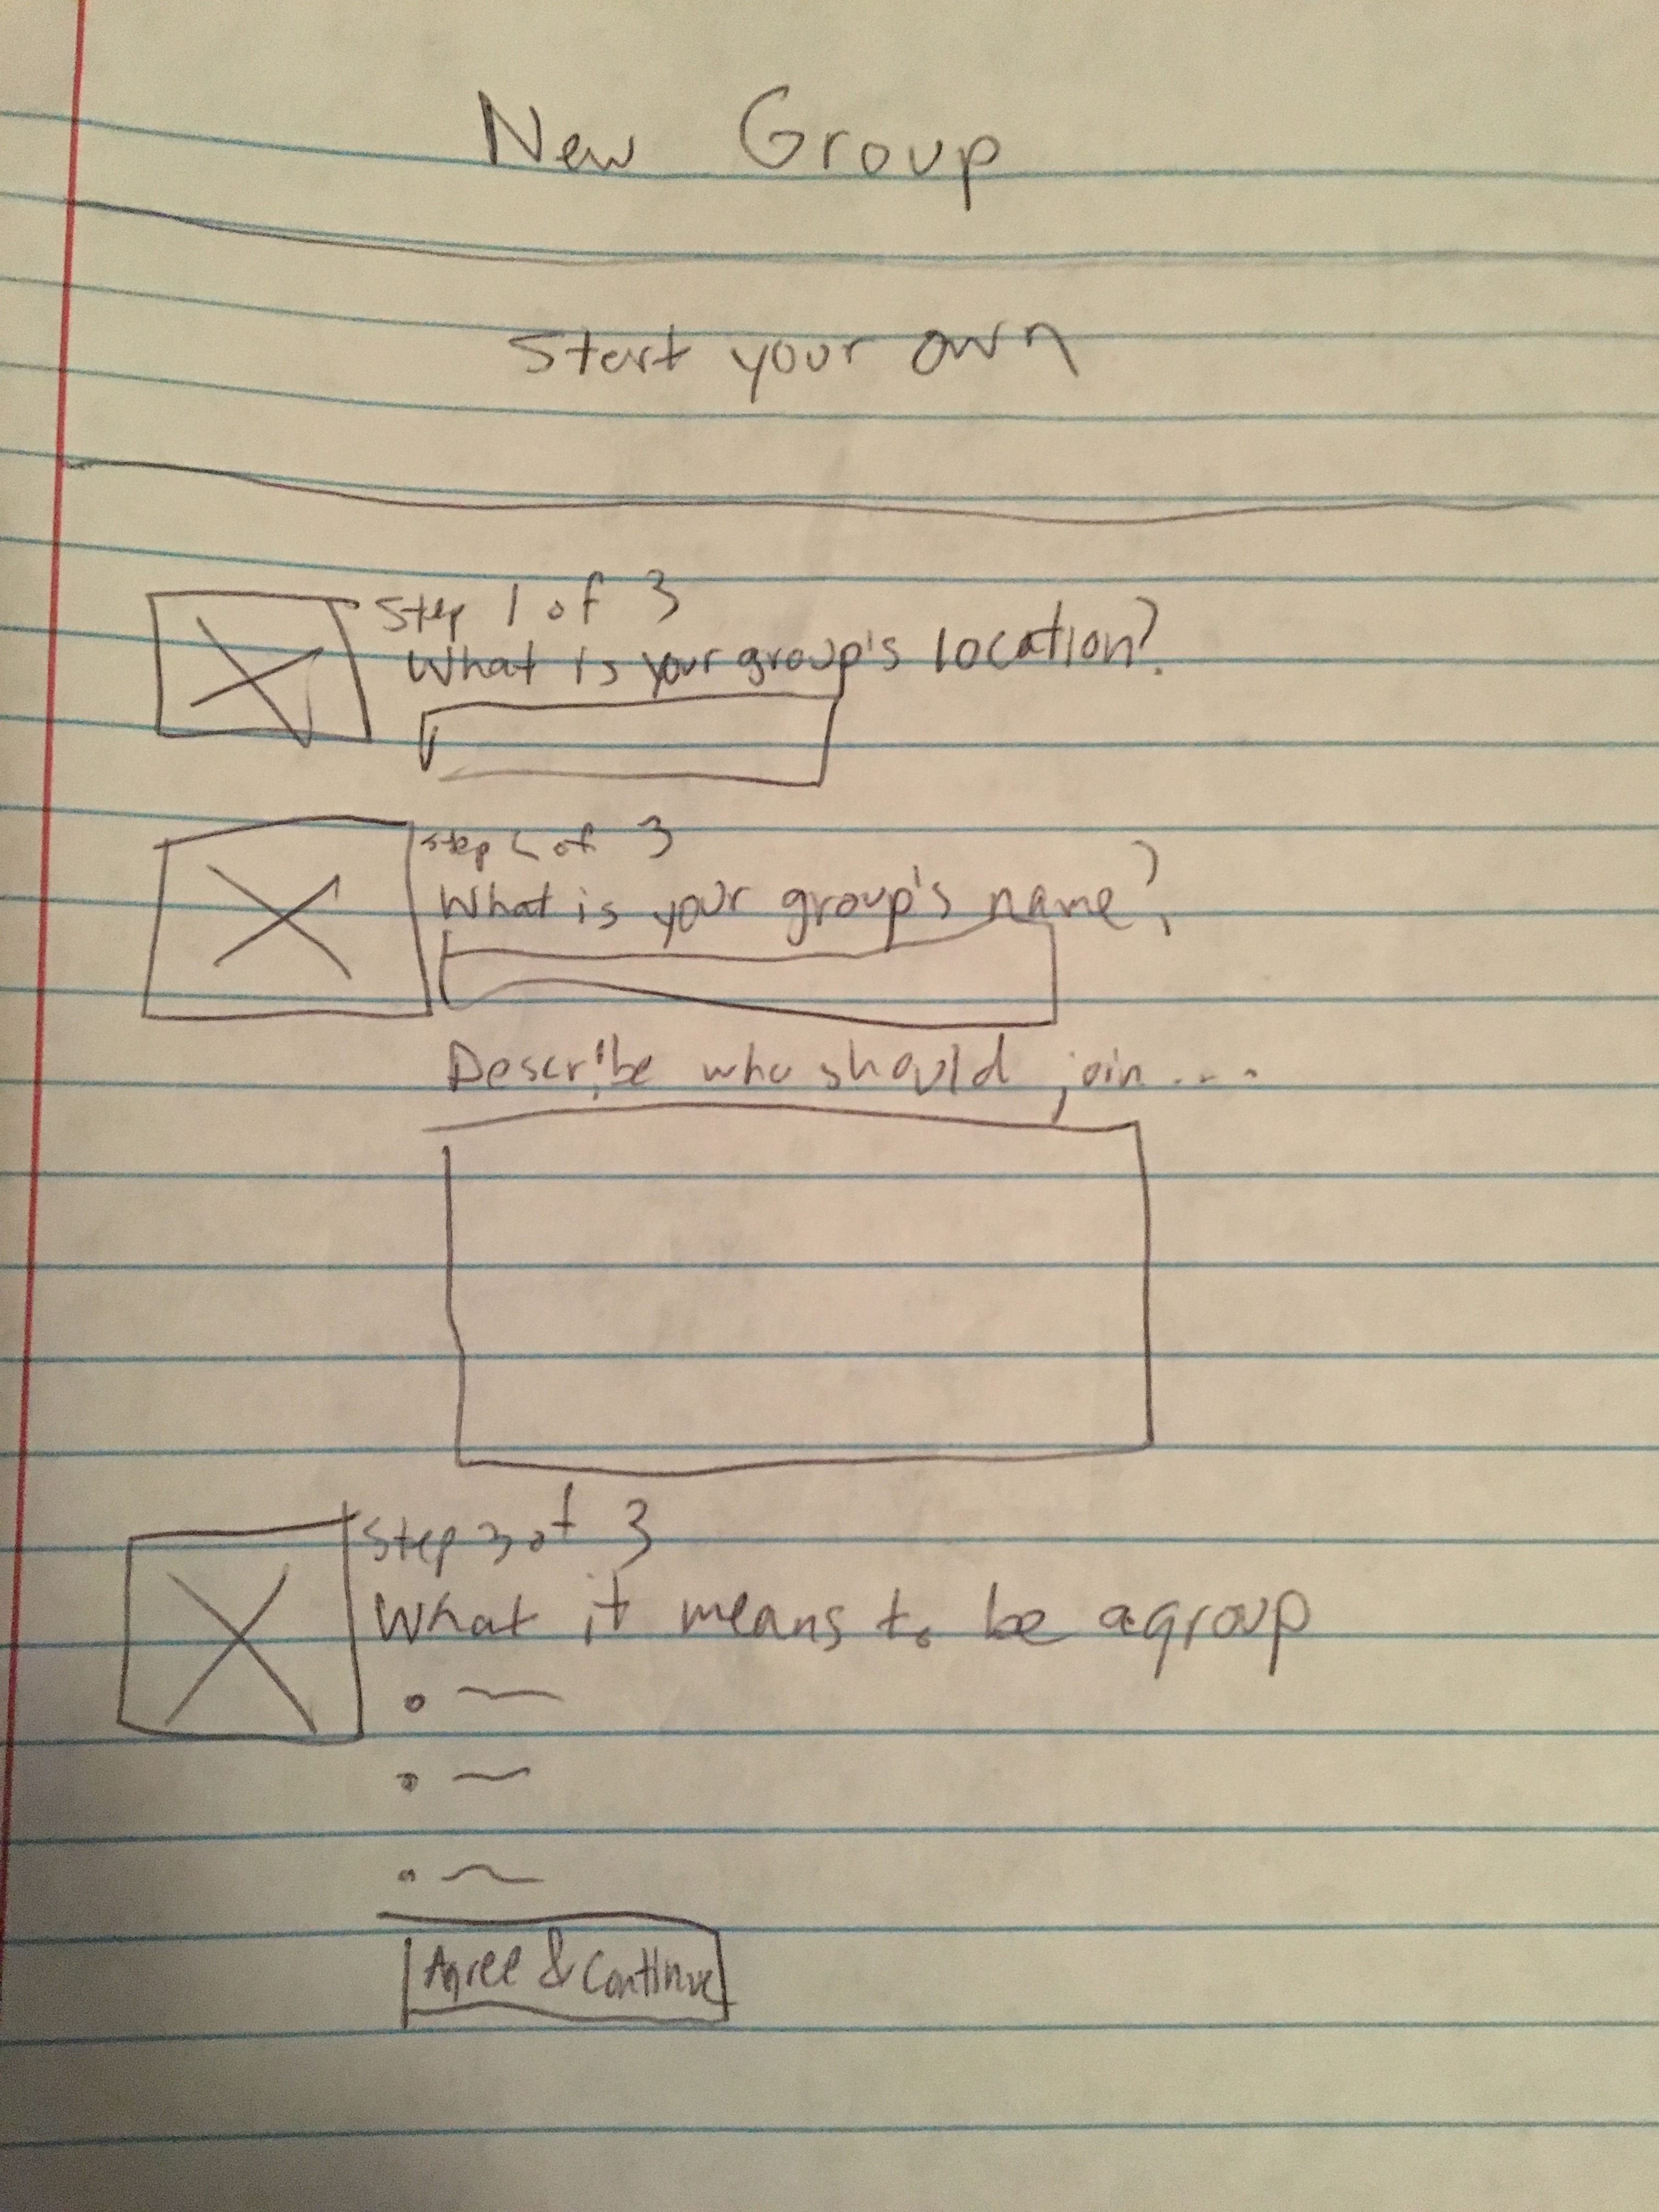 New Group
Start your own
Step 1 of 3
What is your group's location?
Step 2 of 3
What is your group's name?
Describe who should join....
Step 3 of 3
What it means to be a group
Agree & Continue